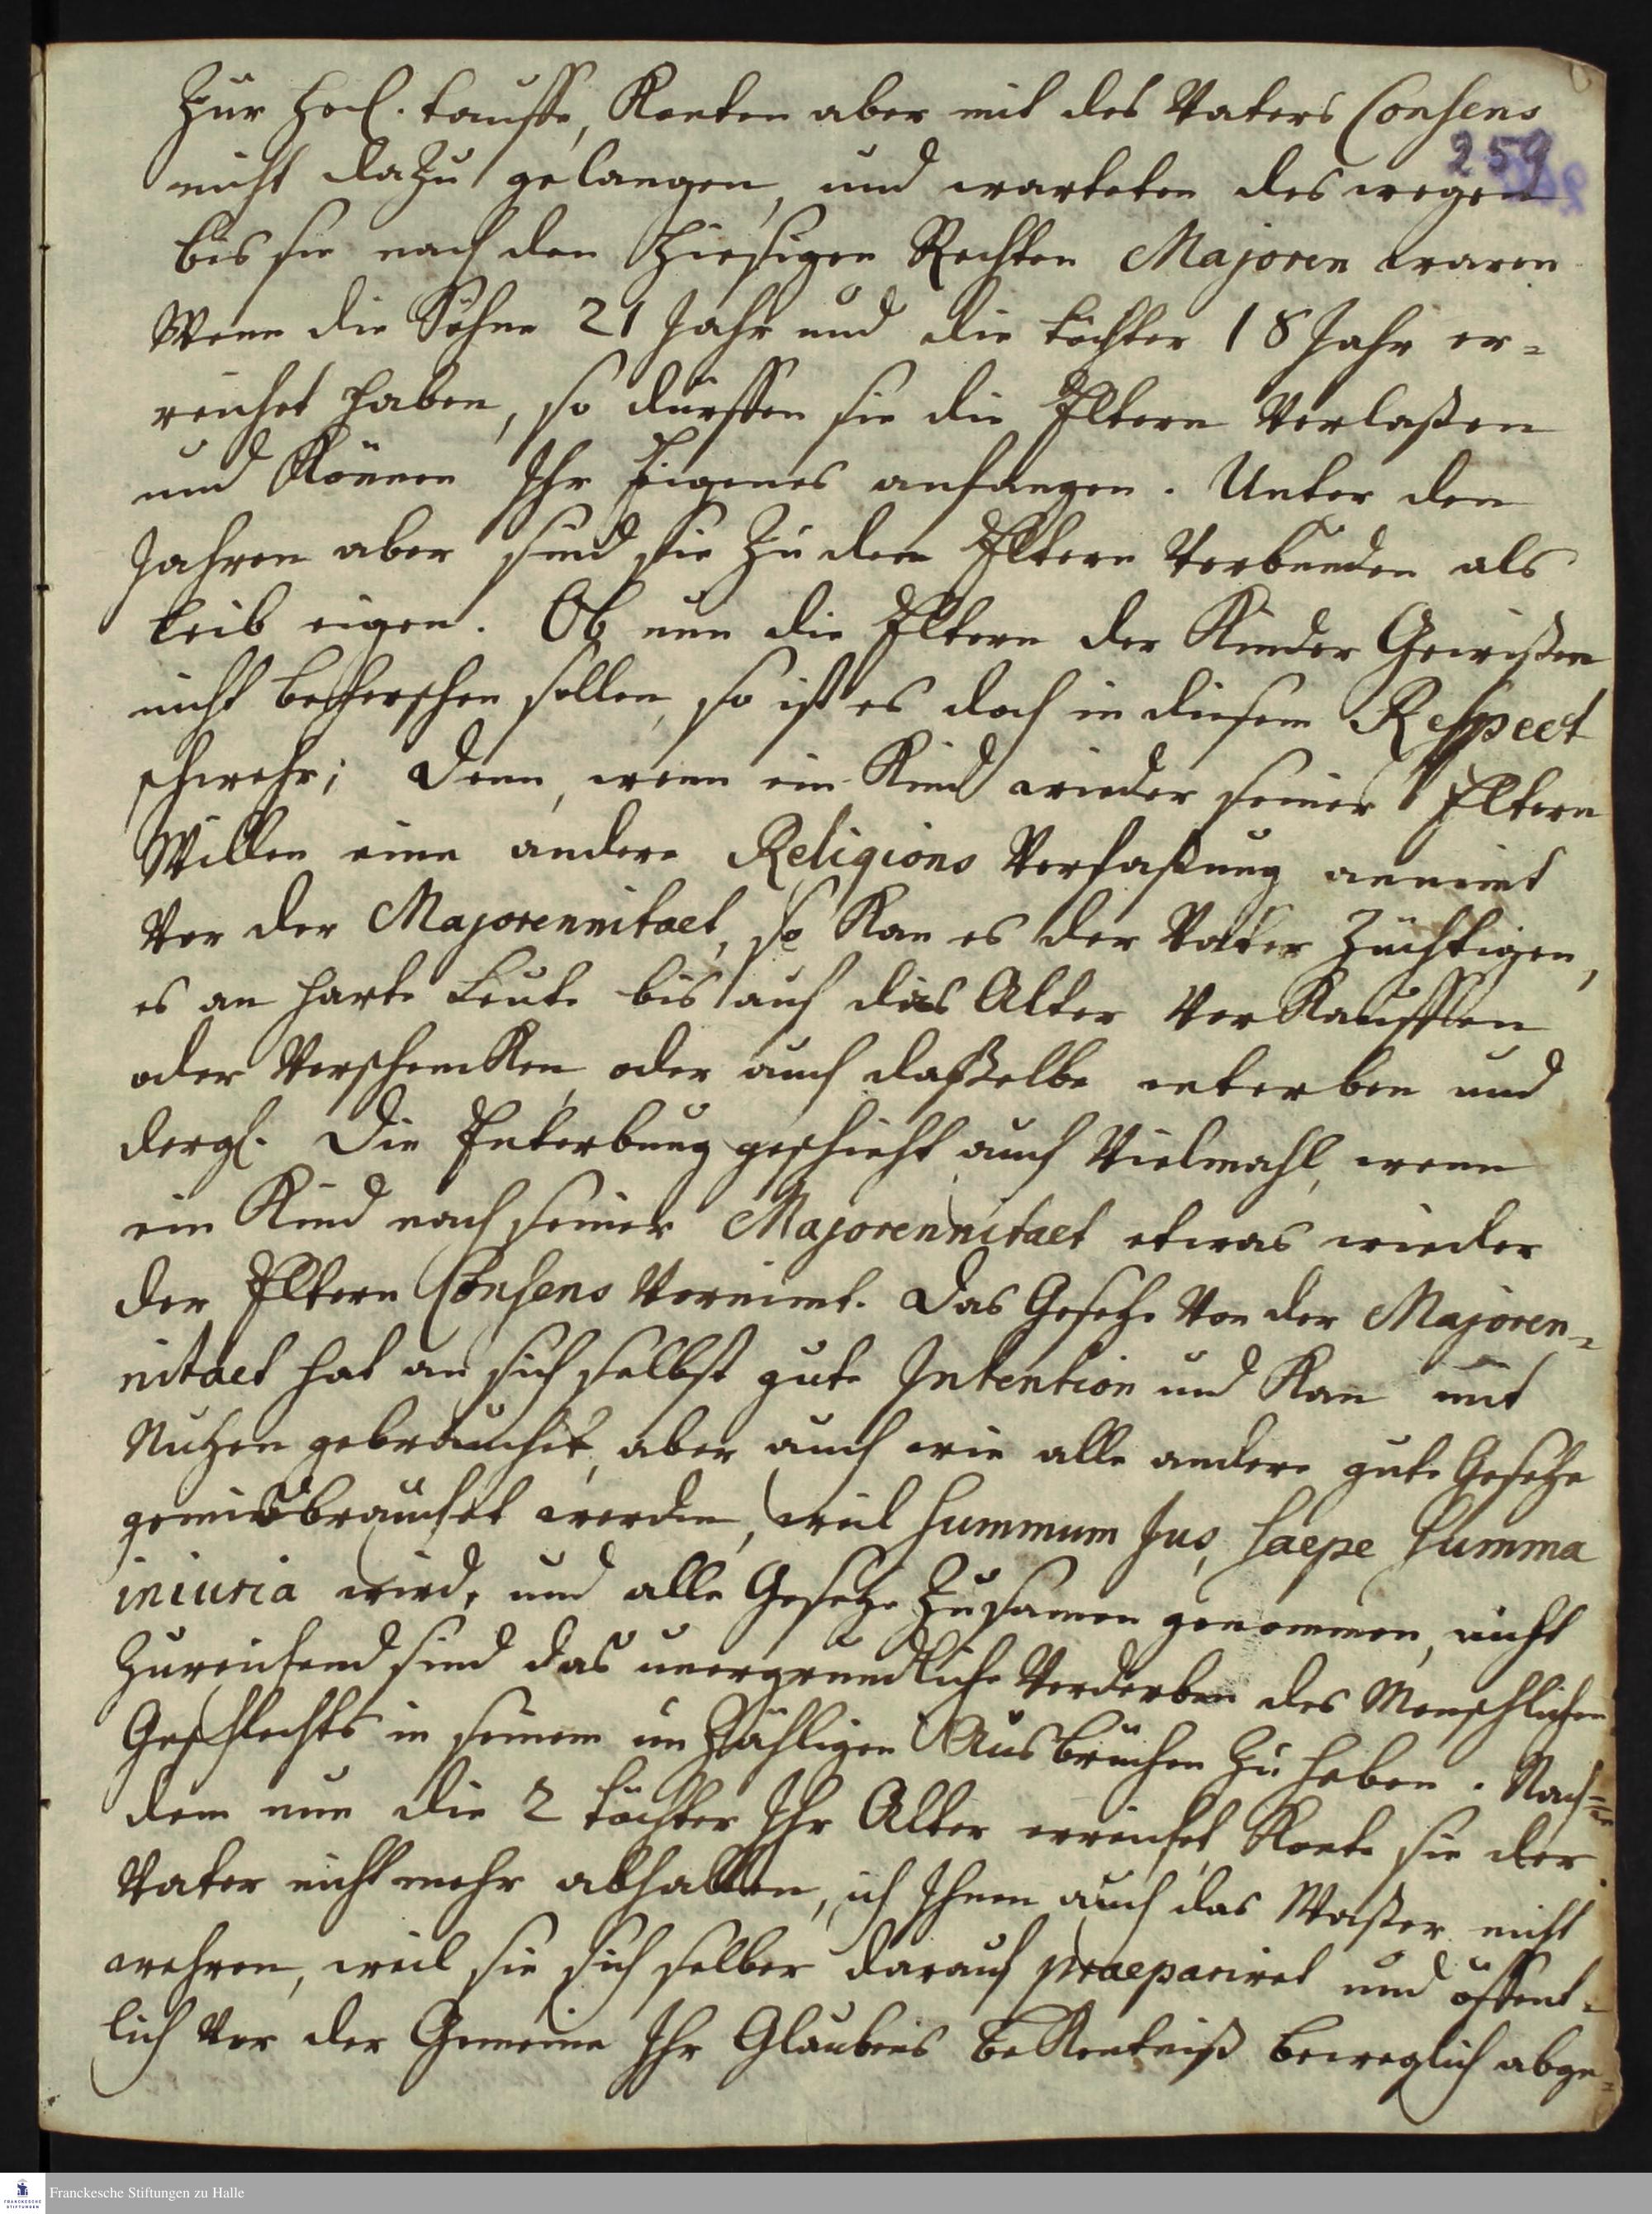 Zur heil. tauffe, Konten aber mit des Vaters Consens
259
nicht dazu gelangen, und warteten des wegen
bis sie nach den hiesigen Rechten Majoren waren
Wenn die Söhne 21 Jahr und die töchter 18 Jahr er=
reichet haben, so dürffen sie die Eltern verlaßen
und Können Ihr Eigenes anfangen. Unter den
Jahren aber sind sie zu den Eltern verbunden als
leib eigen. Ob nun die Eltern der Kinder Gewißen
nicht beherschen sollen, so ist es doch in diesem Respect
schwehr; denn, wenn ein Kind wieder seiner Eltern
Willen eine andere Religions Verfaßung annimt
vor der Majorennitaet, so Kan es der Vater züchtigen,
es an harte Leute bis auf das Alter verKauffen
oder verschencken, oder auch daßelbe enterben und
dergl. Die Enterbung geschieht auch vielmahl, wenn
ein Kind nach seiner Majorennitaet etwas wieder
der Eltern Consens vornimt. Das Gesetze von der Majoren=
nitaet hat an sich selbst gute Intention und Kan mit
Nutzen gebrauchet, aber auch wie alle andere gute Gesetze
gemisbrauchet werden, weil summum Jus, saepe summa
iniuria wird, und alle Gesetze zusamen genommen, nicht
zureichend sind das unergründliche Verderben des Menschlichen
Geschlechts in seinem unzähligen Ausbrüchen zu heben. Nach=
dem nun die 2 töchter Ihr Alter erreichet, Konte sie der
Vater nicht mehr abhalten, ich Ihnen auch das Waßer nicht
wehren, weil sie sich selber darauf praepariret und öffent=
lich vor der Gemeine Ihr Glaubens beKentniß beweglich abge=
Franckesche Stiftungen zu Halle